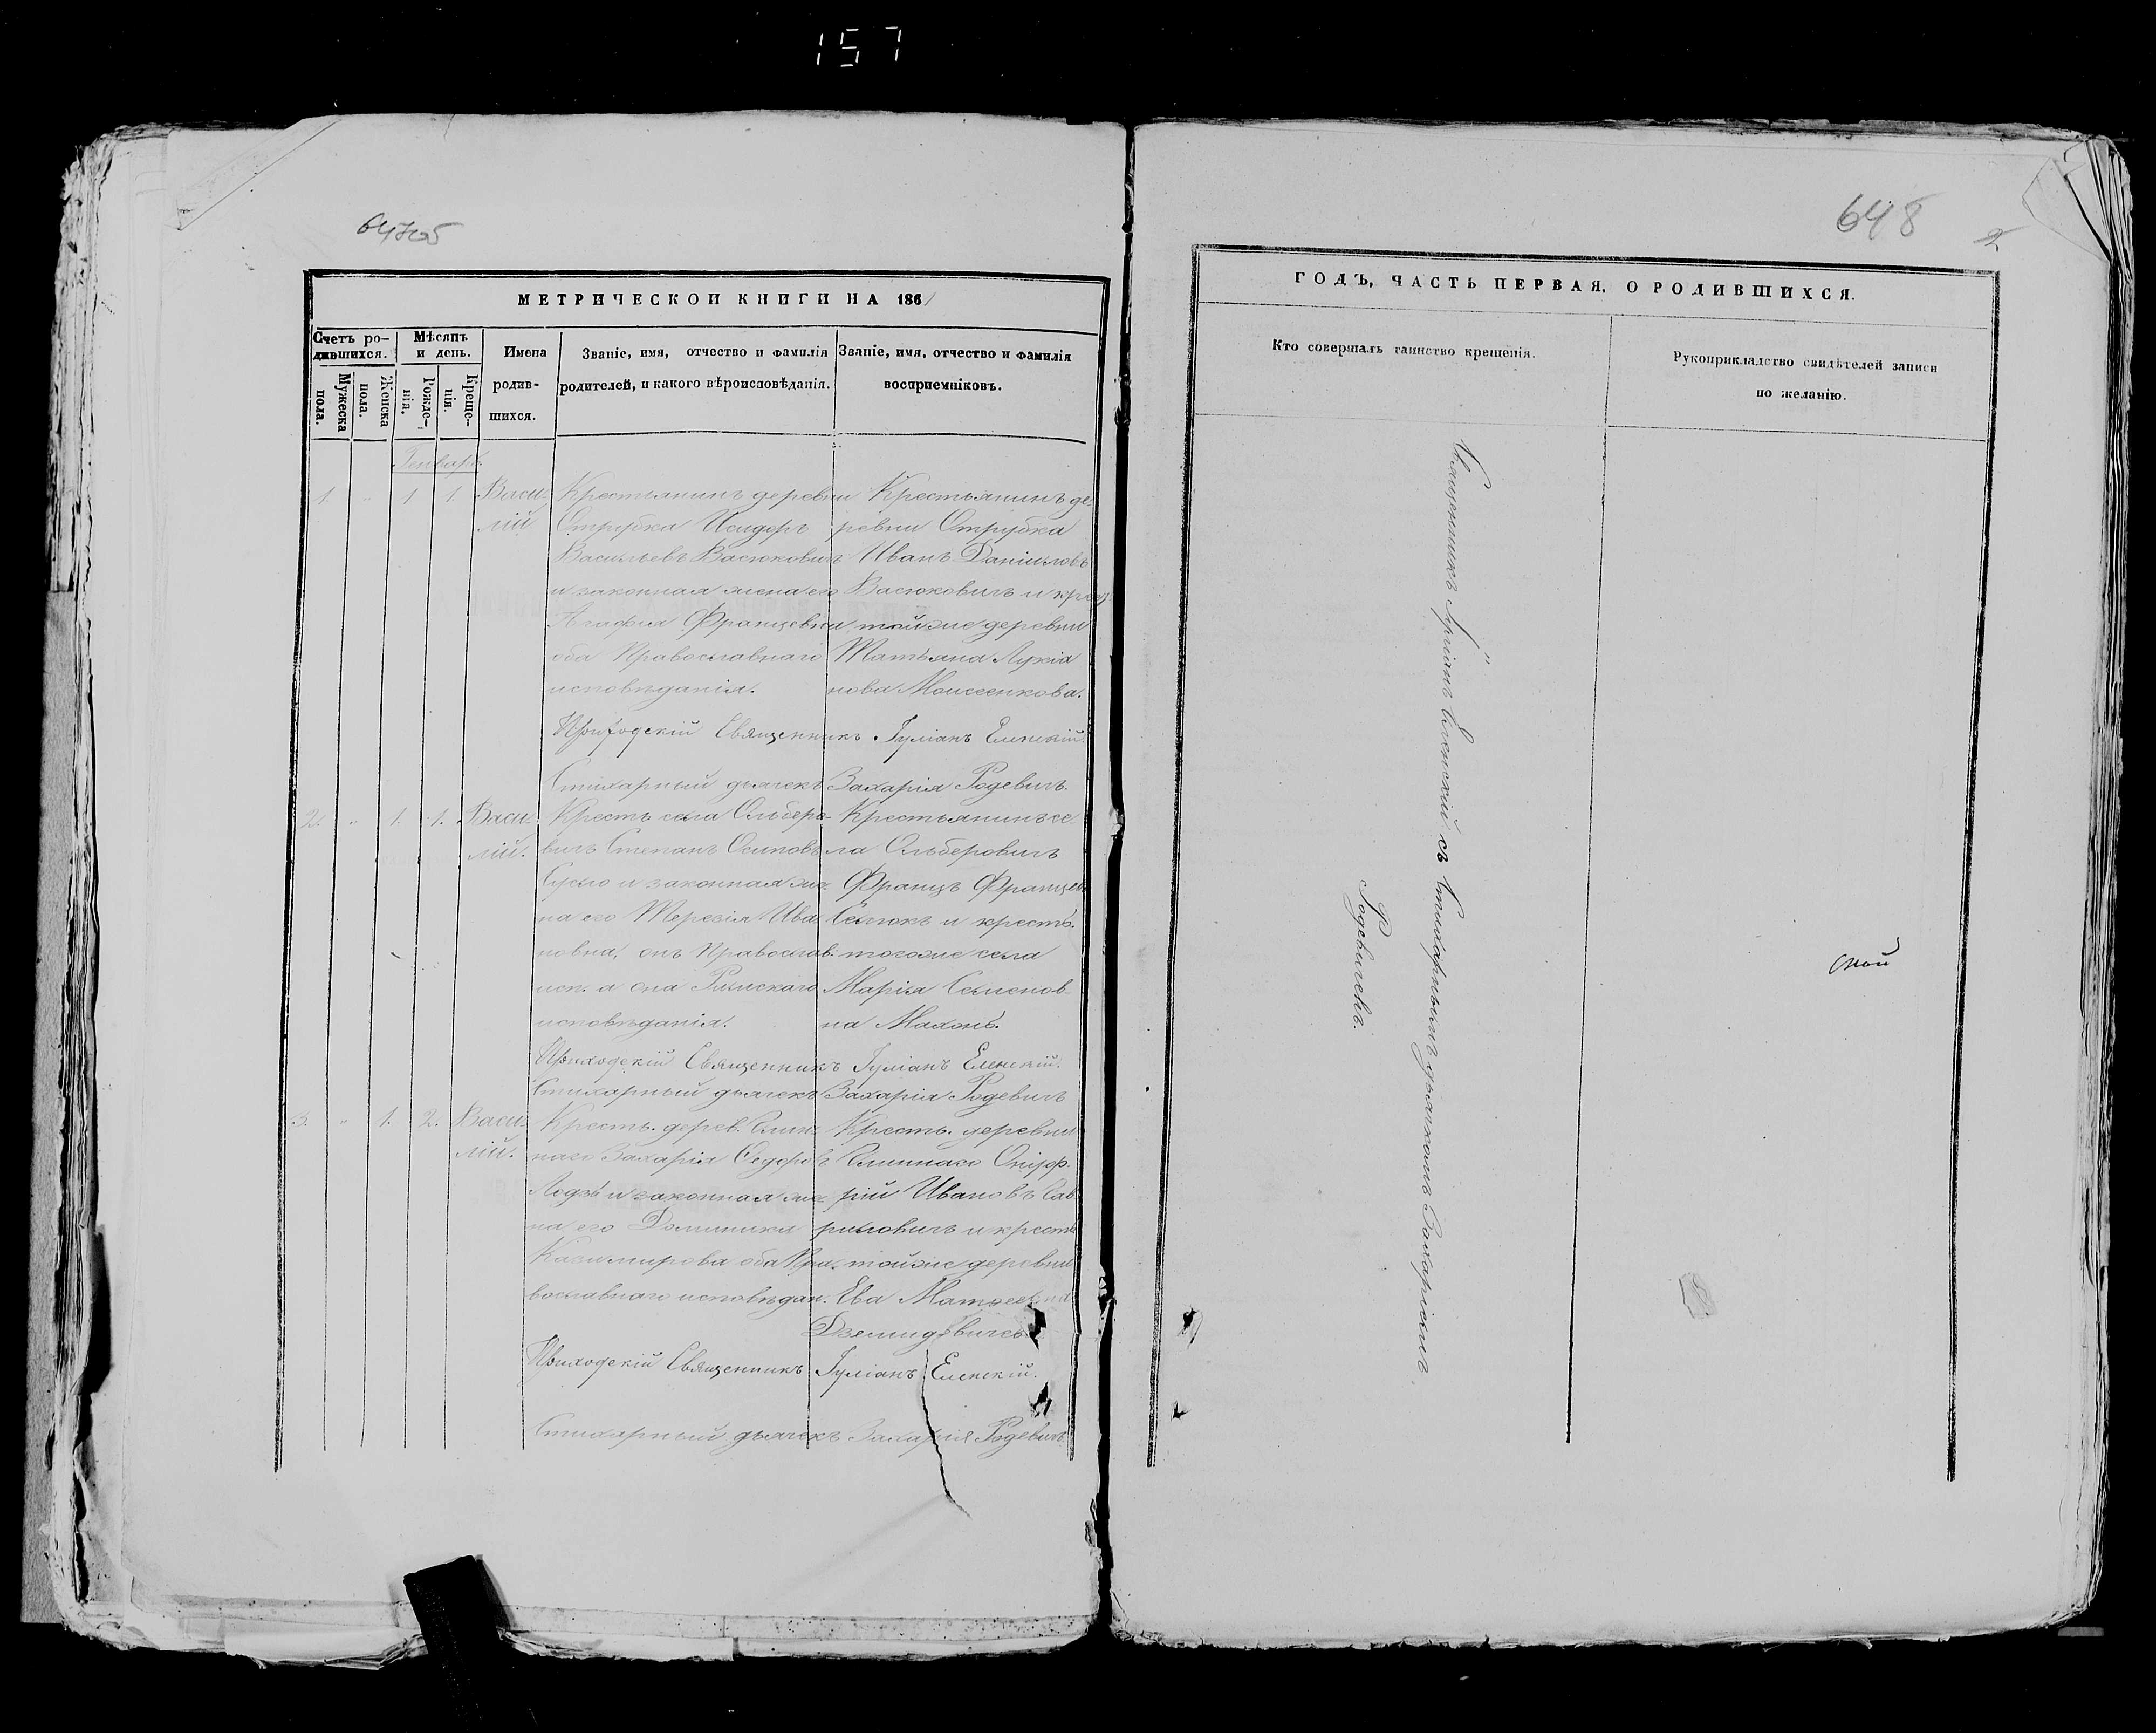 157
648
МЕТРИЧЕСКОЙ КНИГИ НА 1861
ГОДЪ, ЧАСТЬ ПЕРВАЯ, О РОДИВШИХСЯ.
Счетъ ро-
дившихся.
Мужеска
пола.
Женска
пола.
Мѣсяцъ
и день.
Рожде-
нія.
Креще-
нія.
Имена
родив-
шихся.
Званіе, имя, отчество и фамилія
родителей, и какого вѣроисповѣданія.
Званіе, имя, отчество и фамилія
восприемніковъ.
Кто совершалъ таинство крещенія.
Рукоприкладство свидѣтелей записи
по желанію.
Генварь
1 " 1 1 Васи-
лій
Крестьянинъ деревни
Отрубка Исидоръ
Васильевъ Васюковичъ
и законная жена его
Агафія Францевна
оба Православнаго
исповѣданія.
Крестьянинъ де-
ревни Отрубка
Иванъ Даніиловъ
Васюковичъ и крес.
тойже деревни
Татьяна Лукіа
нова Моисеенкова.
Приходскій Священникъ Іуліанъ Еленскій.
Стихарный дьячекъ Захарія Родевичъ.
2. " 1. 1. Васи-
лій.
Кресть. села Ольберо-
вичъ Степанъ Осиповъ
и законная же-
на его Терезія Ива
новна, онъ Православ.
исп. а она Римскаго
исповѣданія.
Крестьянинъ се-
ла Ольберовичъ
Францъ Францев
и кресть.
тогоже села
Марія Семенов-
на Махонь.
Приходскій Священникъ Іуліанъ Еленскій.
Стихарный дьячекъ Захарія Родевичъ
3. " 1. 2. Васи-
лій.
Кресть. дерев.
Захарія Ѳедоровъ
и законная же-
на его Доминика
Казимирова оба Пра-
вославнаго исповѣдан.
Кресть. деревни
Ивановъ Гав
риловичъ и кресть
тойже деревни
Ева
Приходскій Священникъ Іуліанъ Еленскій.
Стихарный дьячекъ Захарія Родевичъ.
Священникъ Іуліанъ Еленскій съ Стихарнымъ дьячкомъ Захаріемъ
Родевичемъ.